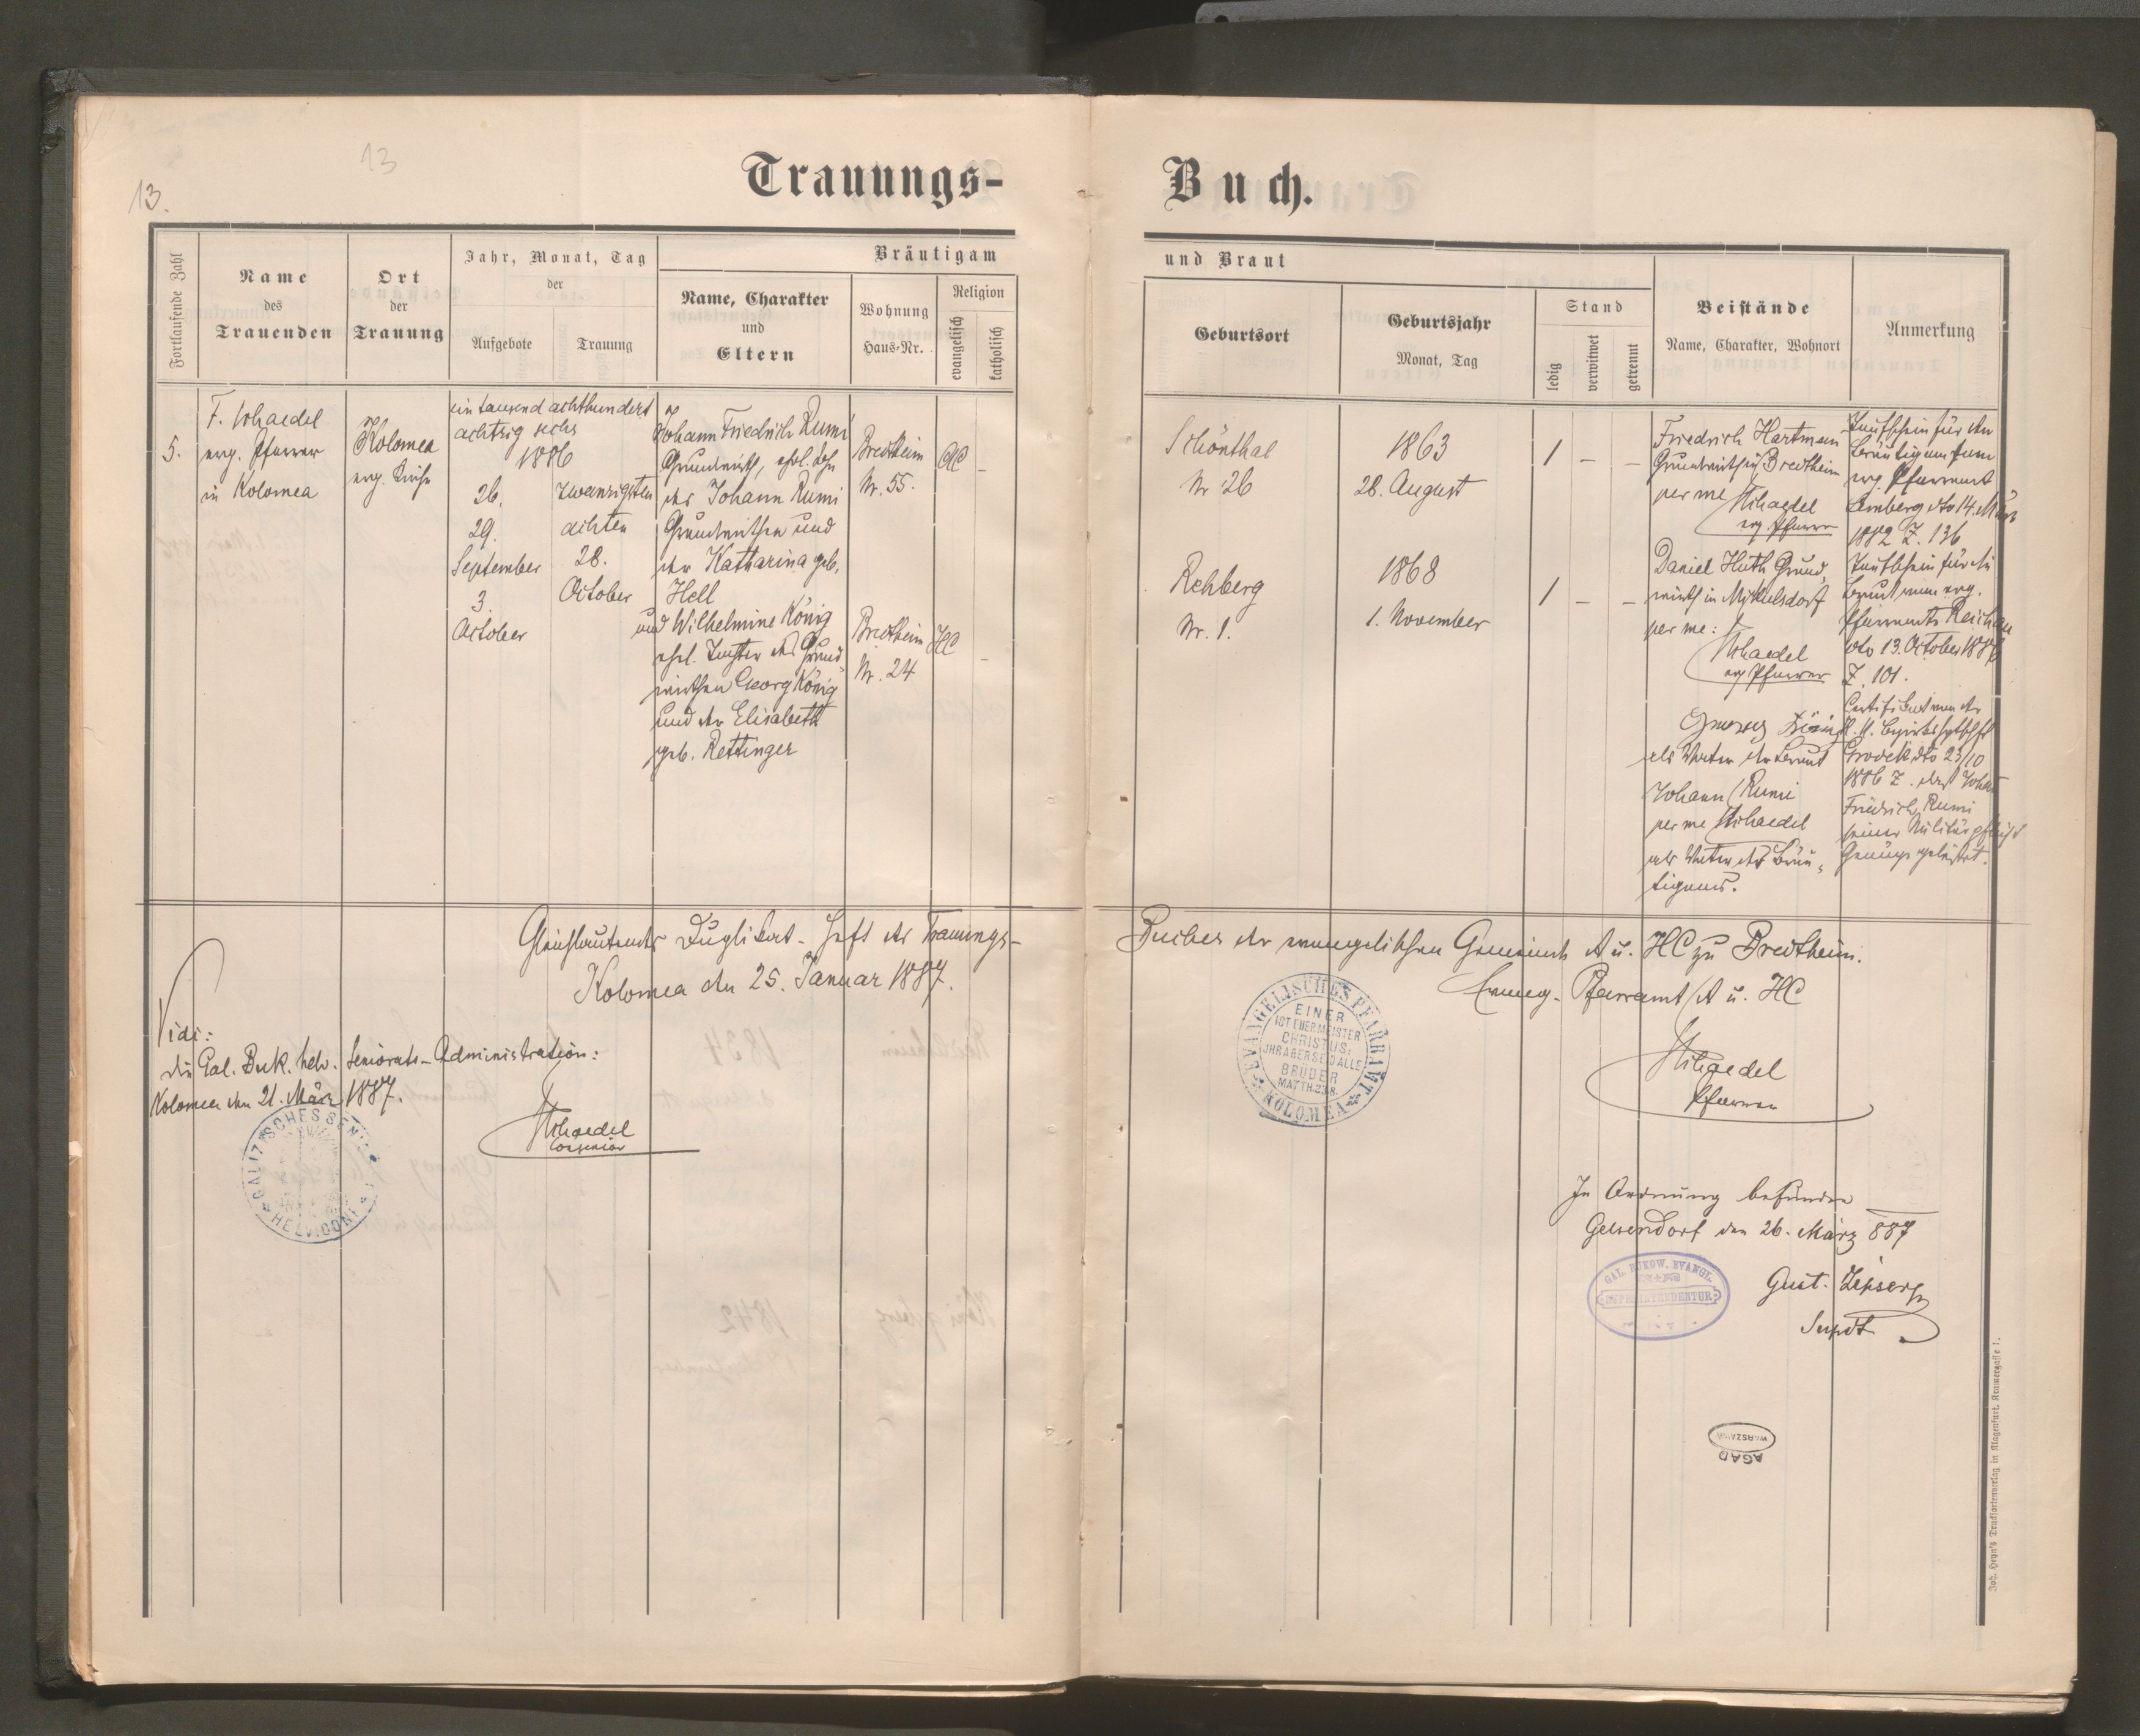 13
13.
Trauungs-
Buch.
Fortlaufende Zahl
Name
des
Trauenden
Ort
der
Trauung
Jahr, Monat, Tag
der
Aufgebote
Trauung
Bräutigam
Name, Charakter
und
Eltern
Wohnung
Haus-Nr.
Religion
evangelisch
katholisch
und Braut
Geburtsort
Geburtsjahr
Monat, Tag
Stand
ledig
verwitwet
getrennt
Beistände
Name, Charakter, Wohnort
Anmerkung
5.
F. Schaedel
evg. Pfarrer
in Kolomea
Kolomea
evg. Kirche
ein tausend achthundert
achtzig sechs
1886
26.
29.
September
3.
October
zwanzigsten
achten
28.
October
Johann Friedrich Rumi
Grundwirth, ehel. Sohn
des Johann Rumi
Grundwirthen und
der Katharina geb.
Hell
und Wilhelmine König
ehel. Tochter des Grund
wirthen Georg König
und der Elisabeth
geb. Rettinger
Bredtheim
Nr. 55.
AC –
Bredtheim
Nr. 24
HC –
Schönthal
Nr 26
1863
28. August
1 – –
Rehberg
Nr. 1.
1868
1. November
1 – –
Friedrich Hartman
Grundwirth in Bredtheim
per me Schaedel
evg. Pfarrer
Daniel Huth Grund
wirth in Mikulsdorf
per me:
Schaedel
evg Pfarrer
Georg König
als Vater der Braut
Johann Rumi
per me Schaedel
als Vater des Bräu-
tigams.
Taufschein für den
Bräutigam vom
evg. Pfarramt
Lemberg dto 14. März
1882 Z. 136
Taufschein für die
Braut vom evg.
Pfarramte Reichau
dto 13. October 1886
Z. 101.
Certifikat von der
k. k. Bezirkshptschft
Grodek dto 23/10
1886 Z. dass Johann
Friedrich Rumi
seiner Militärpflicht
Genüge geleistet.
Gleichlautendes Duplikat-Heft des Trauungs-
Buches der evangelischen Gemeinde A u. HC zu Bredtheim.
Kolomea den 25. Januar 1887.
Evang. Pfarramt A u. HC
Schaedel
Pfarrer
EVANGELISCHES PFARRAMT
KOLOMEA
EINER
IST EUER MEISTER
CHRISTUS;
IHR ABER SEID ALLE
BRÜDER
MATTH.23.8.
Vidi:
die Gal. Buk. helv. Seniorats-Administration:
Kolomea den 21. März 1887.
Schaedel
Consenior
GALIZISCHES SEN
HELV. CONF
In Ordnung befunden
Gelsendorf den 26. März 887
GAL. BUKOW. EVANGL.
SUPERINTENDENTUR
Gust. Zipser
Supdt
AGAD
WARSZAWA
Joh. Heyn's Drucksortenverlag in Klagenfurt, Kramergasse 1.